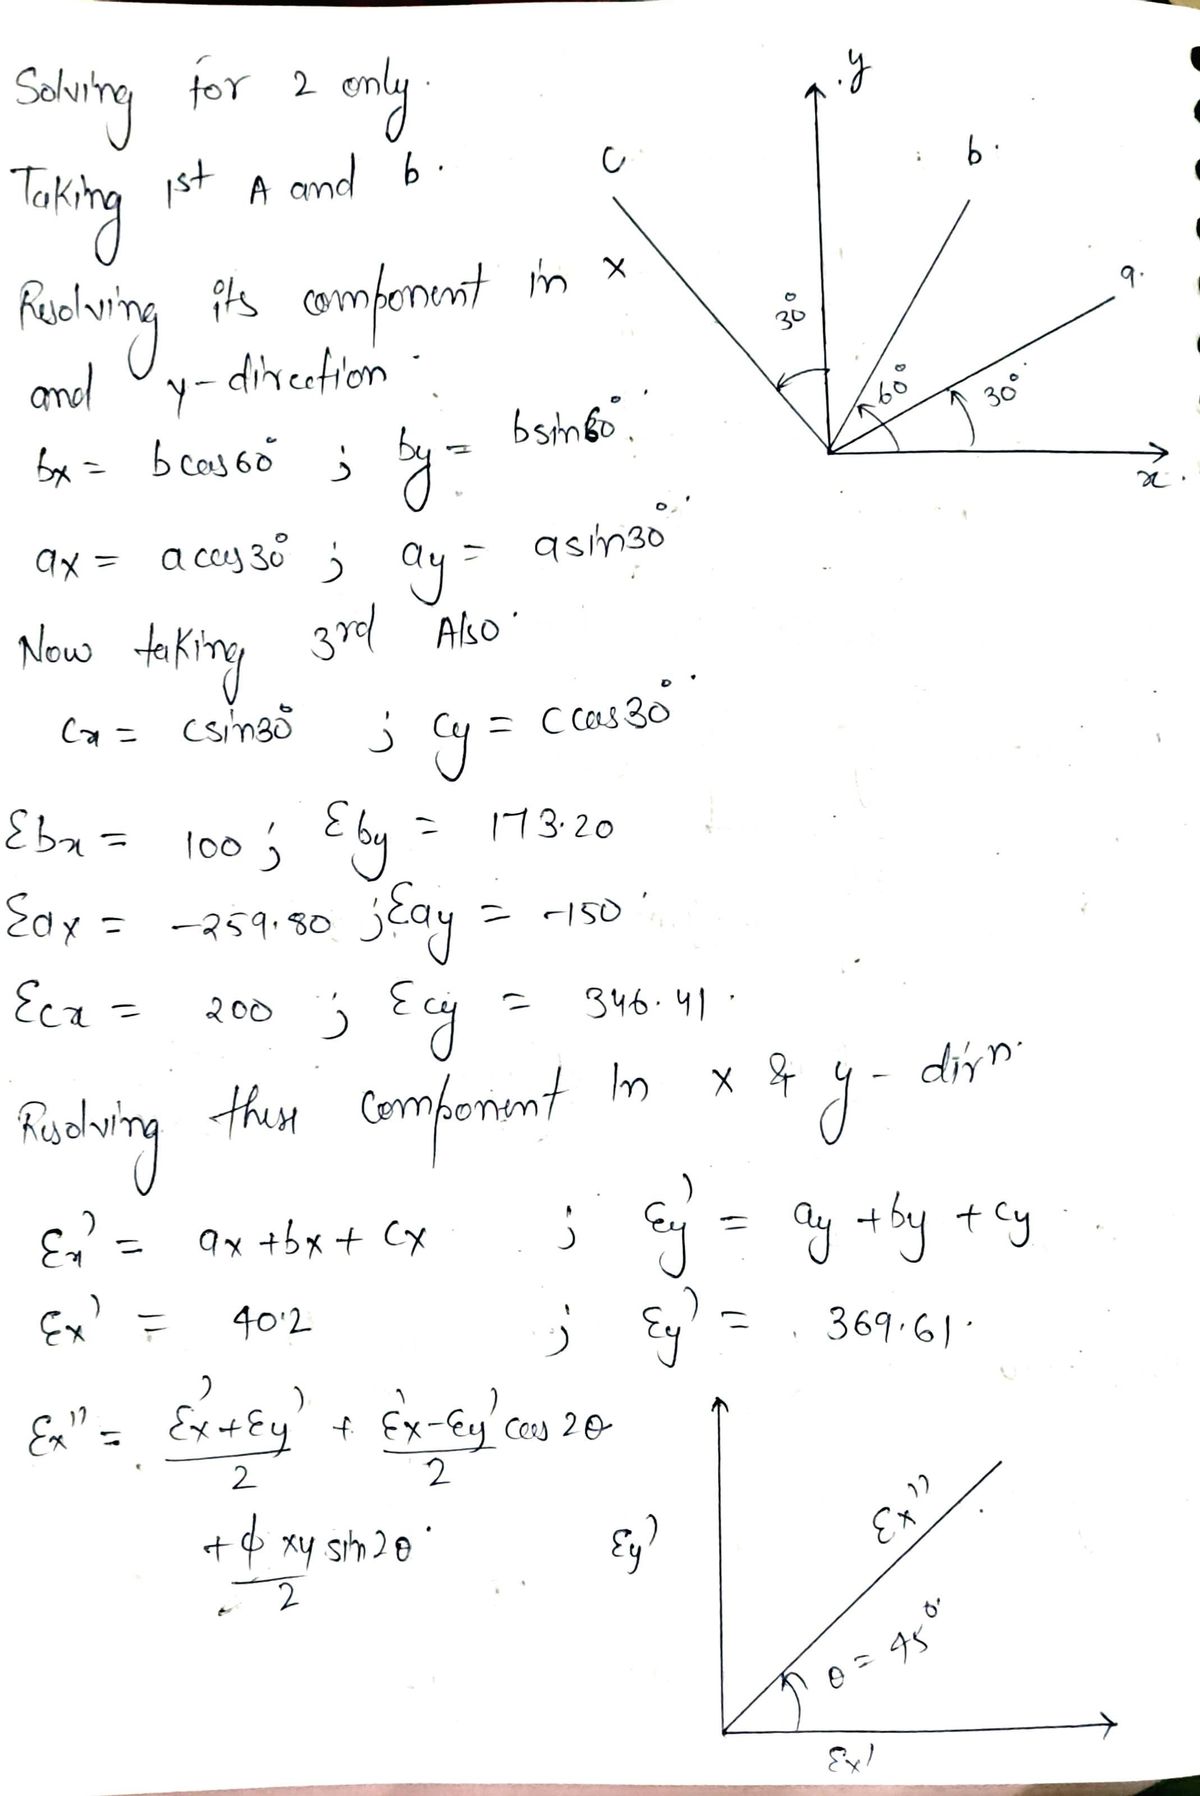 Solving for 2 only.
Taking 1st A and b.
Resolving its component in x
and y-direction.
bx = bcos60° ; by = bsin60°.
ax = acos30° ; ay = asin30°.
Now taking 3rd Also.
Cx = csin30° ; Cy = Ccos30°.
Ɛbx = 100 ; Ɛby = 173.20
Ɛax = -259.80 ; Ɛay = -150
Ɛcx = 200 ; Ɛcy = 346.41.
Resolving these component In x & y - dirn.
Ɛx' = ax + bx + Cx ; Ɛy' = ay + by + cy
Ɛx' = 40.2 ; Ɛy' = 369.61.
Ɛx'' = Ɛ'x + Ɛy'/2 + Ɛ'x - Ɛy'/2 cos 2θ
+ ϕ xy/2 sin 2θ.
y
c
b.
a.
30°
60°
30°
x.
Ɛy'
Ɛx''
θ = 45°.
Ɛx'